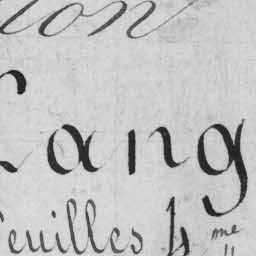 ion
Lang
feuilles 4me